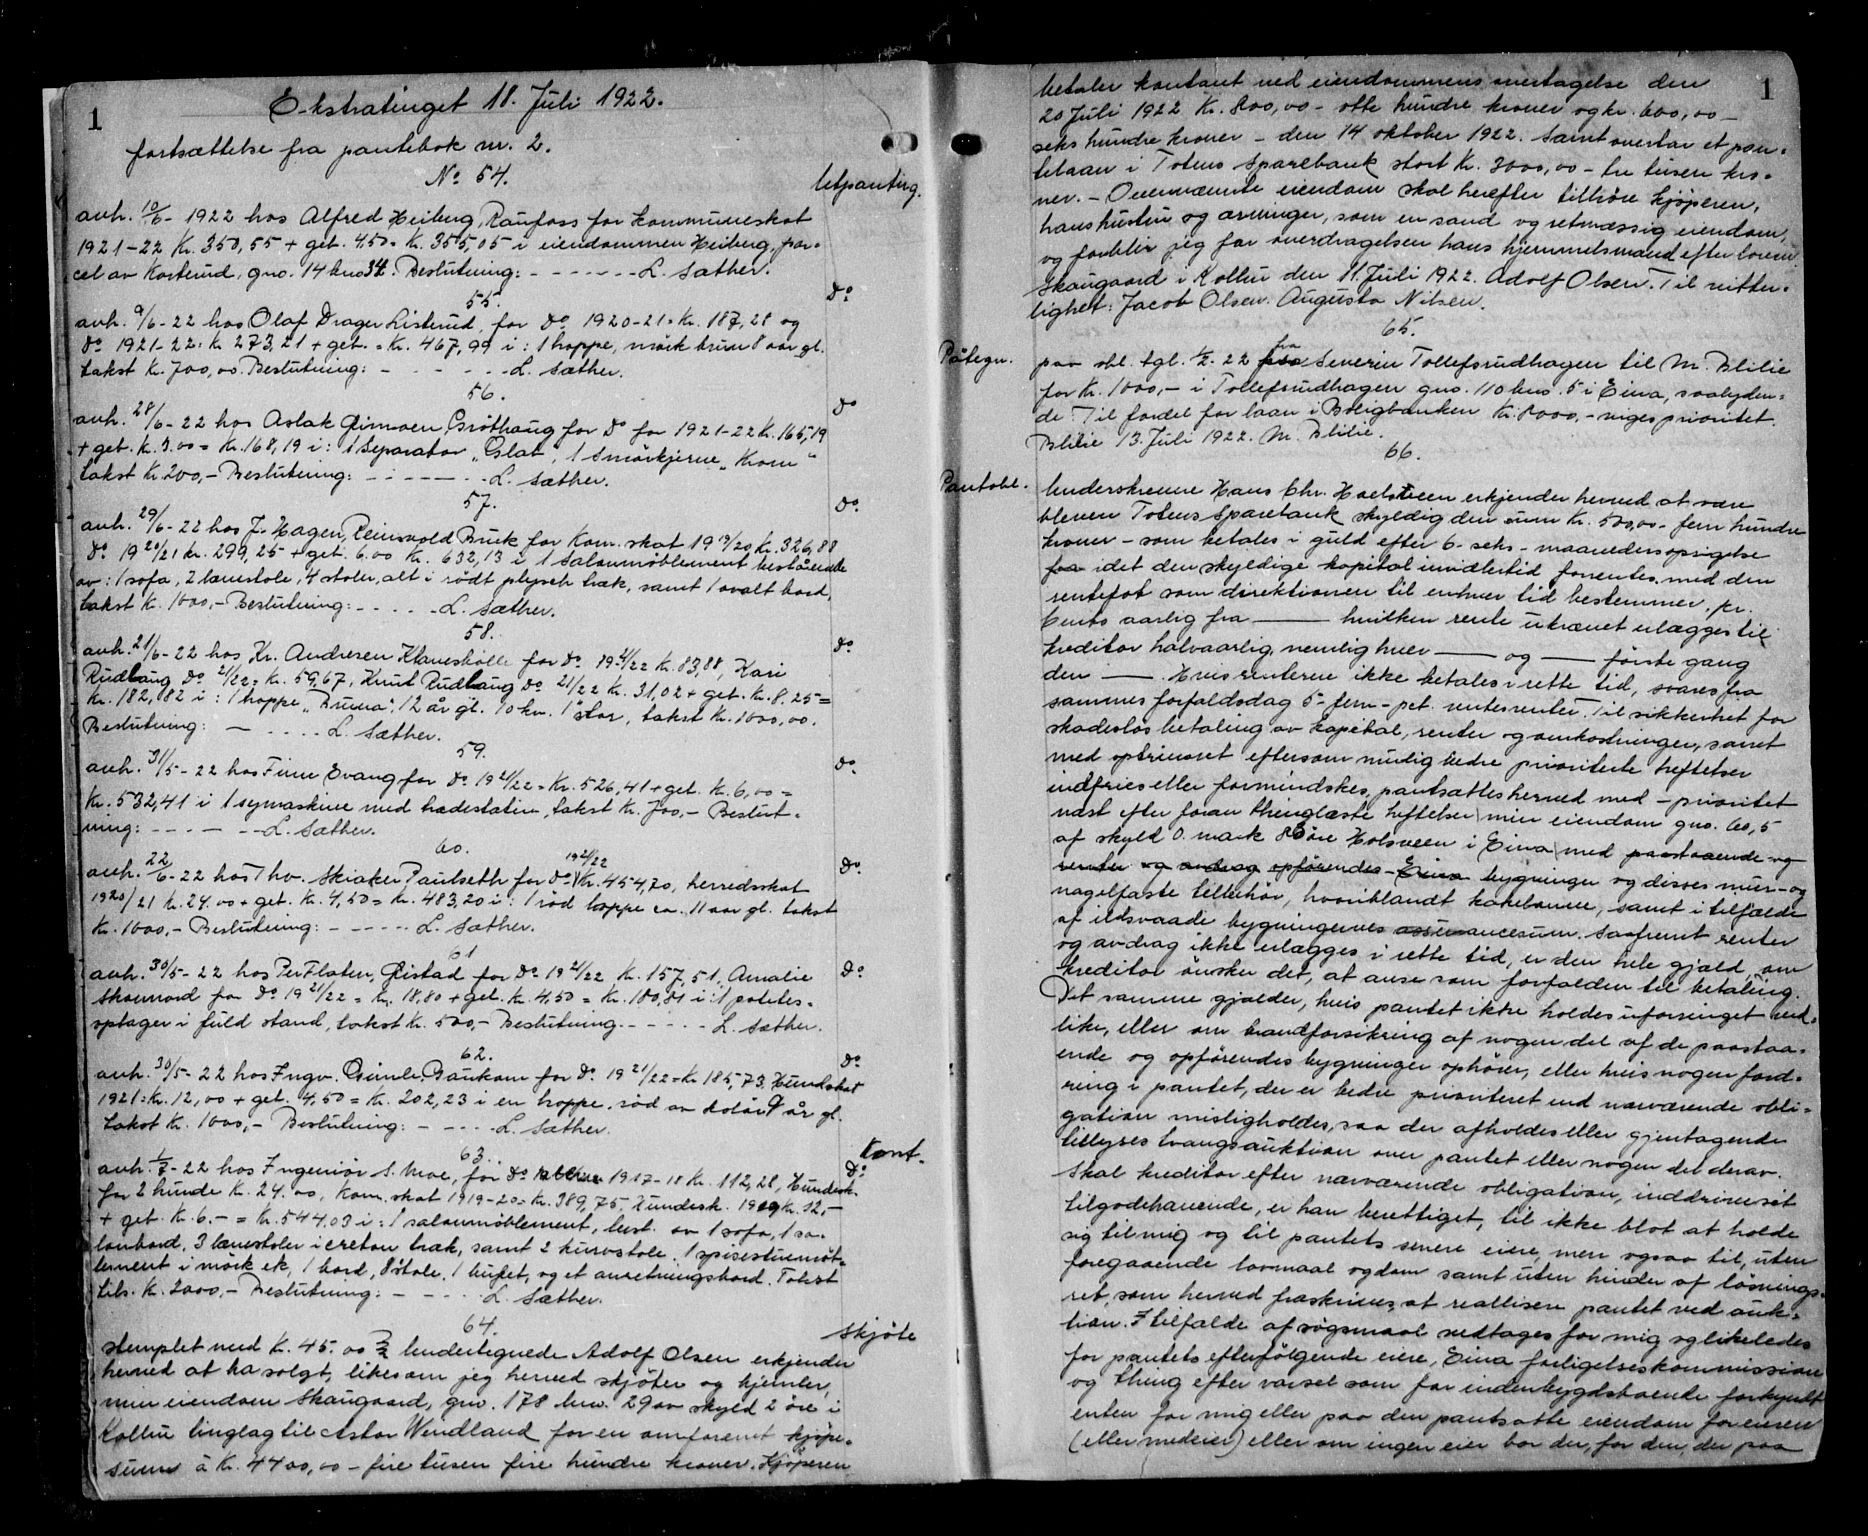 1
Ekstratinget 18. Juli 1922.
fortsættelse fra pantebok nr. 2.
No 54.
Utpanting.
anh. 10/6 - 1922 hos Alfred Heiberg, Raufoss for Kommuneskat
1921-22 Kr. 350,55 + geb. 4.50 = Kr. 355,05 i eiendommen Heiberg, par-
cel av Kosterud, gno. 14 bno 34. Beslutning: - - - - - - - L. Sæther.
55.
Do
anh. 9/6 - 22 hos Olaf Drager Listerud, for Do 1920-21 = Kr. 187,28 og
Do 1921-22: K 273,21 + geb. = Kr. 467,99 i: 1 hoppe, mörk brun 8 aar gl.
takst Kr. 700,00. Beslutning: - - - - - - L. Sæther.
56.
Do
anh. 28/6 - 22 hos Aslak Gimoen, Gröthaug for Do for 1921-22 K. 165,19
+ geb. K. 3.00 = Kr. 168,19 i: 1 Separator "Glab", 1 Smörkjerne "Krom"
takst Kr. 200,- Beslutning: - - - - - - L. Sæther.
57.
Do
anh. 29/6 - 22 hos J. Hagen, Reinsvold Bruk for Kom. skat 19 19/20 Kr. 326,88
Do 19 20/21 Kr. 299,25 + geb. 6.00 Kr. 632,13 i 1 Salonmöblement bestående
av: 1 sofa, 2 lænestole, 4 stoler, alt i rödt plysch træk, samt 1 ovalt bord,
takst K. 1000,- Beslutning: - - - - - L. Sæther.
58.
Do
anh. 21/6 - 22 hos Kr. Andresen Klaveshölle for Do 19 21/22 K. 83,88, Kari
Rudlang Do 21/22 = K. 59,67, Knut Rudlang Do 21/22 K. 31,02 + geb. K. 8.25 =
Kr. 182,82 i: 1 hoppe "Bruna" 12 år gl. 10 kv. 1" stor, takst K. 1000,00.
Beslutning: - - - - - L. Sæther.
59.
Do
anh. 31/5 - 22 hos Finn Evang for Do 19 21/22 = Kr. 526,41 + geb. K. 6,00 =
Kr. 532,41 i 1 symaskine med trædestativ, takst K. 700,- Beslut-
ning: - - - - - L. Sæther.
60.
Do
anh. 22/6 - 22 hos Thv. Skiaker, Paulseth for Do 19 21/22 Kr. 454,70, herredsskat
19 20/21 K. 24.00 + geb. K. 4,50 = Kr. 483,20 i: 1 röd hoppe ca. 11 aar gl. takst
K. 1000,- Beslutning: - - - - - L. Sæther.
61
Do
anh. 30/5 - 22 hos Per Flaten, Gistad for Do 19 21/22 K. 157,51, Amalie
Skounord for Do 19 21/22 = Kr. 18,80 + geb. K. 4,50 = Kr. 180,81 i: 1 potetes-
optager i fuld stand, takst K. 500,- Beslutning. - - - - - L. Sæther.
62.
Do
anh. 30/5 - 22 hos Ingv. Gimle, Baukom for Do 19 21/22 = Kr 185,73, Hundskat
1921: Kr. 12,00 + geb. 4,50 = Kr. 202,23 i en hoppe, röd av kolör 9 år gl.
takst K. 1000,- Beslutning: - - - - L. Sæther.
63.
Kont.
Do
anh. 1/7 - 22 hos Ingeniör S. Moe, for Do 1917-18 Kr. 112,28, Hundesk.
for 2 hunde K. 24.00, Kom. skat 1919-20 = Kr. 389,75, Hundesk. 1919 Kr. 12,-
+ geb. K. 6.- = K. 544.03 i: 1 salonmöblement, best. av 1 sofa, 1 sa-
lonbord, 3 lænestoler i creton træk, samt 2 kurvstole, 1 spisestuemöb-
lement i mörk ek, 1 bord, 8 stole, 1 bufet, og et anretningsbord. Takst
tils. K. 2000,- Beslutning: - - - - L. Sæther.
64.
Skjöte
Stemplet med K. 45.00 Undertegnede Adolf Olsen erkjender
herved at ha solgt, likesom jeg herved skjöter og hjemler,
min eiendom Skaugaard, gno. 178 bno. 29 av skyld 2 öre i
Kolbu tinglag til Astor Wendland for en omforenet kjöpe-
sum à Kr. 4400,00 - fire tusen fire hundre kroner. Kjöperen
1
betaler kontant ved eiendommens overtagelse den
20 Juli 1922 Kr. 800,00 - otte hundre kroner og kr. 600,00 -
seks hundre kroner - den 14 oktober 1922. Samt overtar et pan-
telaan i Totens Sparebank stort Kr. 3000,00 - tre tusen kro-
ner. - Ovennævnte eiendom skal herefter tilhöre kjöperen,
hans hustru og arvinger, som en sand og retmæssig eiendom,
og forblir jeg for overdragelsen hans hjemmelsmand efter loven.
Skaugaard i Kolbu den 11. Juli 1922. Adolf Olsen. Til vitter-
lighet: Jacob Olsen. Augusta Nilsen.
65.
Påtegn.
paa obl. tgl. 1/2 - 22 fra Severin Tollefsrudhagen til M. Blilie
for Kr. 1000,- i Tollefsrudhagen gno. 110 bno. 5 i Eina, saalyden-
de: Til fordel for laan i Boligbanken Kr. 8000,- viges prioritet.
Blilie 13. Juli 1922. M. Blilie.
66.
Pantobl.
Underskrevne Hans Chr. Hoelsveen erkjender herved at være
bleven Totens Sparebank skyldig den sum Kr. 500,00 - fem hundre
kroner - som betales i guld efter 6 - seks - maaneders opsigelse
idet den skyldige kapital imidlertid forrentes med den
rentefot som direktionen til enhver tid bestemmer, pr.
Cento aarlig fra —— hvilken rente ukrævet erlægges til
kreditor halvaarlig, nemlig hver —— og —— förste gang
den —— . Hvis renterne ikke betales i rette tid, svares fra
sammes forfaldsdag 5 - fem - pct. rentesrenter. Til sikkerhet for
skadeslös betaling av kapital, renter og omkostninger, samt
med oprinoret eftersom mulig bedre prioriterte heftelser
indfries eller formindskes, pantsættes herved med - prioritet
næst efter foran thinglæste heftelser min eiendom gno. 60, 5
af skyld 0. mark 8 öre Holsveen i Eina med paastaaende og
opförendes bygninger og disses mur- og
nagelfaste tilbehör, hvoriblandt kakelovne, samt i tilfælde
af ildsvaade bygningernes assurancesum. Saafremt renter
og avdrag ikke erlægges i rette tid, er den hele gjæld, om
kreditor önsker det, at anse som forfalden til betaling.
Det samme gjælder, hvis pantet ikke holdes uforringet ved-
like, eller om brandforsikring af nogen del af de paastaa-
ende og opförendes bygninger ophörer, eller hvis nogen ford-
ring i pantet, der er bedre prioriteret end nærværende obli-
gation misligholdes, saa der afholdes eller gjentagende
tillyses tvangsauktion over pantet eller nogen del derav.
Skal kreditor efter nærværende obligation, inddrive sit
tilgodehavende, er han berettiget, til ikke blot at holde
sig til mig og til pantets senere eiere, men ogsaa til, uten
foregaaende lovmaal og dom samt uten hinder af lösnings-
ret, som herved fraskrives, at realisere pantet ved auk-
tion. I tilfælde af sögsmaal vedtages for mig og likeledes
for pantets efterfölgende eiere, Eina forligelseskommission
og thing efter varsel som for indenbygdsboende forkyndt
enten for mig eller paa den pantsatte eiendom for eieren
(eller medeier) eller om ingen eier bor der, for den, der paa